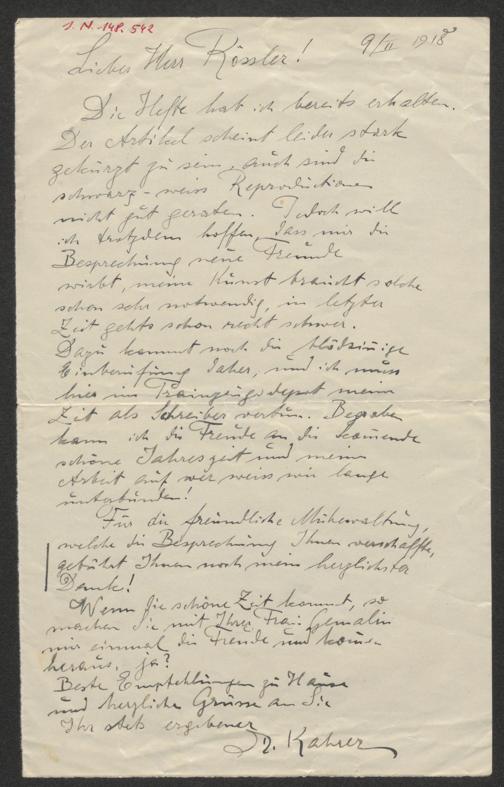 I. N. 148.542
9/II 1918
Lieber Herr Rössler!
Die Hefte hab ich bereits erhalten.
Der Artikel scheint leider stark
gekürzt zu sein, auch sind die
schwarz-weiss Reproductionen
nicht gut geraten. Jedoch will
ich trotzdem hoffen, dass mir die
Besprechung neue Freunde
wirbt, meine Kunst braucht solche
schon sehr notwendig, in letzter
Zeit gehts schon recht schwer.
Dazu kommt noch die blödsinnige
Einberufung daher, und ich muss
hier im Traingzeugsdepot meine
Zeit als Schreiber vertun. Begraben
kann ich die Freude an die kommende
schöne Jahreszeit und meine
Arbeit auf wer weiss wie lange
unterbunden!
Für die freundliche Mühewaltung,
welche die Besprechung Ihnen verschaffte,
gebührt Ihnen noch mein herzlichster
Dank!
Wenn die schöne Zeit kommt, so
machen Sie mit Ihrer Frau Gemalin
mir einmal die Freude und kommen
heraus, ja?
Beste Empfehlungen zu Hause
und herzliche Grüsse an Sie
Ihr stets ergebener
Kahrer